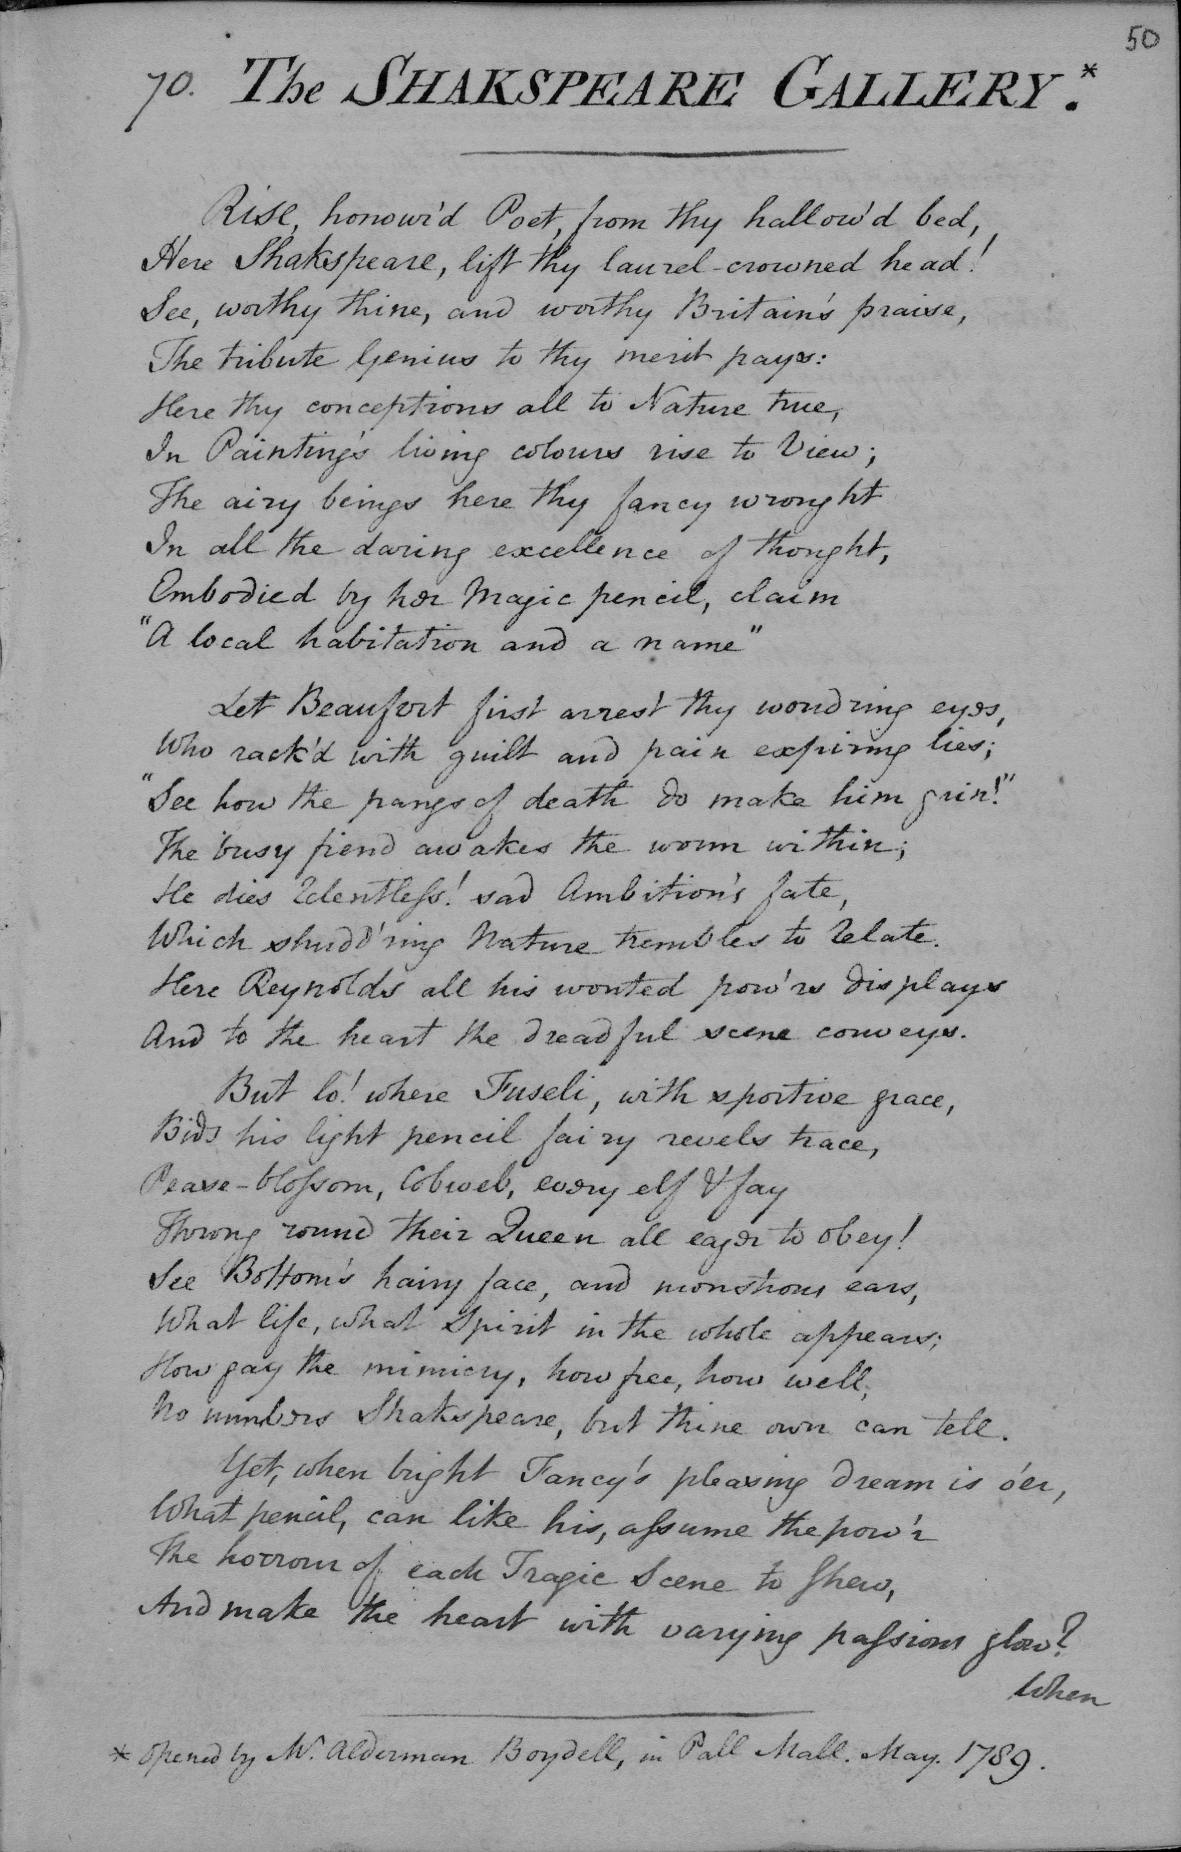 50
70. The SHAKSPEARE GALLERY.*
Rise, honour'd Poet, from thy hallow'd bed,
Here Shakspeare, lift thy laurel-crowned head!
See, worthy thine, and worthy Britain's praise,
The tribute Genius to thy merit pays:
Here thy conceptions all to Nature true,
In Painting's living colours rise to View;
The airy beings here thy fancy wrought
In all the daring excellence of thought,
Embodied by her Magic pencil, claim
"A local habitation and a name"
Let Beaufort first arrest thy wond'ring eyes,
Who rack'd with guilt and pain expiring lies;
"See how the pangs of death do make him grin!"
The busy fiend awakes the worm within;
He dies Relentless! sad Ambition's fate,
Which shudd'ring Nature trembles to Relate.
Here Reynolds all his wonted pow'rs displays
And to the heart the dreadful scene conveys.
But lo! where Fuseli, with sportive grace,
Bids his light pencil fairy revels trace,
Pease-blossom, Cobweb, every elf & fay
Throng round their Queen all eager to obey!
See Bottom's hairy face, and monstrous ears,
What life, what Spirit in the whole appears;
How gay the mimicry, how free, how well,
No numbers Shakspeare, but thine own can tell.
Yet, when bright Fancy's pleasing dream is o'er,
What pencil, can like his, assume the pow'r
The horrour of each Tragic Scene to Shew,
And make the heart with varying passions glow?
When
* opened by Mr. Alderman Boydell, in Pall Mall. May. 1789.